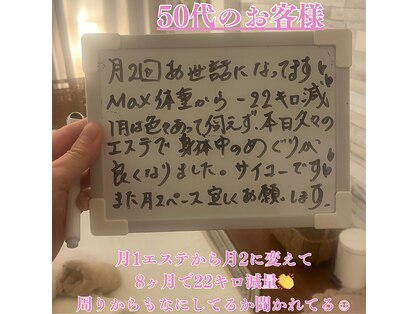 50代のお客様
月2回お世話になってます
Max体重から-22キロ減
1月は色々あって伺えず、本日久々の
エステで身体中のめぐりが
良くなりました。サイコーです
また月2ペース宜しくお願いします。
月1エステから月2に変えて
8ヶ月で22キロ減量👏
周りからもなにしてるか聞かれてる☺